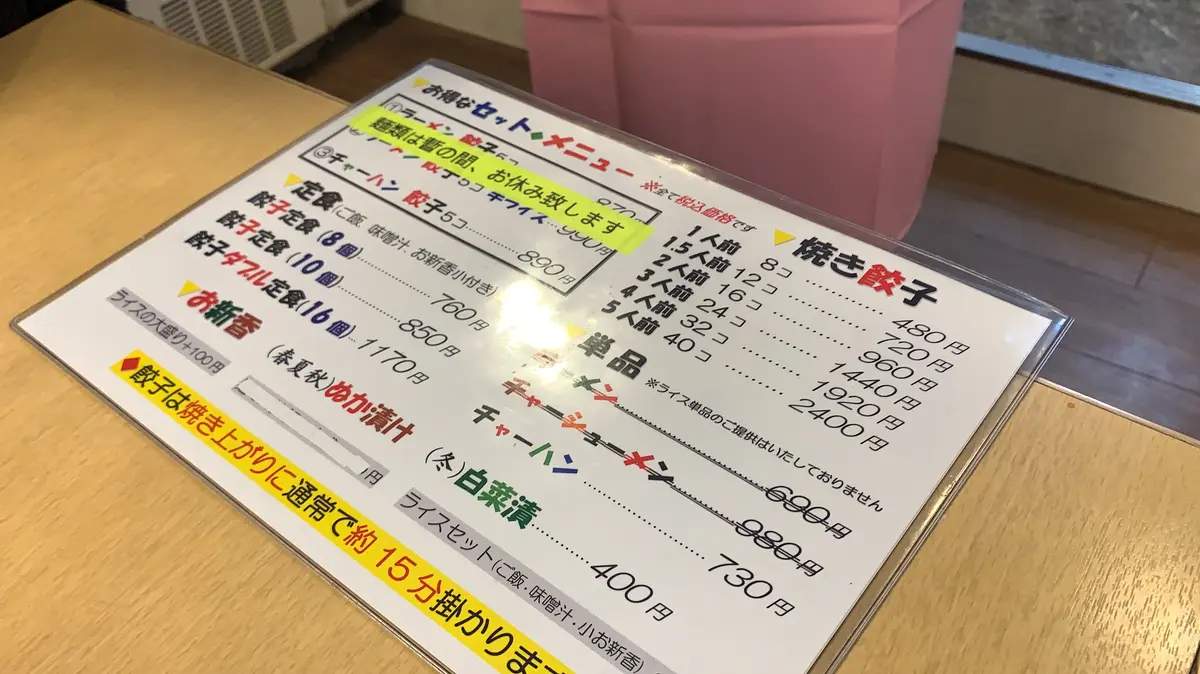 お得なセット◆メニュー
※全て税込価格です
①ラーメン 餃子5コ
870
麺類は暫の間、お休み致します
餃子5コ キライス…990円
③チャーハン 餃子5コ………890円
定食(ご飯、味噌汁、お新香小付き)
餃子定食(8個)…………760円
餃子定食(10個)…………850円
餃子ダブル定食(16個)…1170円
ライスの大盛り+100円
お新香
(春夏秋)ぬか漬け
円
(冬)白菜漬………400円
焼き餃子
1人前 8コ…………480円
1.5人前 12コ…………720円
2人前 16コ…………960円
3人前 24コ…………1440円
4人前 32コ…………1920円
5人前 40コ…………2400円
単品 ※ライス単品のご提供はいたしておりません
ラーメン…………690円
チャーシューメン…………980円
チャーハン…………730円
ライスセット(ご飯・味噌汁・小お新香)
◆餃子は焼き上がりに通常で約15分掛かります